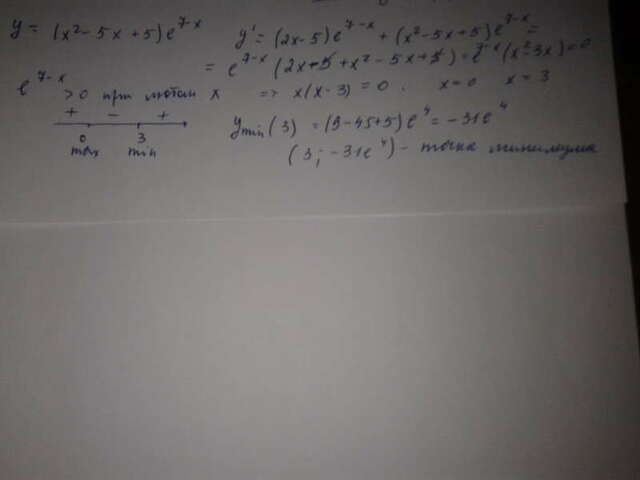 y = (x² - 5x + 5)e^(7-x)  y' = (2x-5)e^(7-x) + (x²-5x+5)e^(7-x) =
= e^(7-x) (2x-5 + x² - 5x + 5) = e^(7-x) (x²-3x) = 0
e^(7-x) > 0 при любом x => x(x-3) = 0. x=0 x = 3
+ - +
0 3
max min
y min (3) = (9-45+5)e⁴ = -31e⁴
(3; -31e⁴) - точка минимума